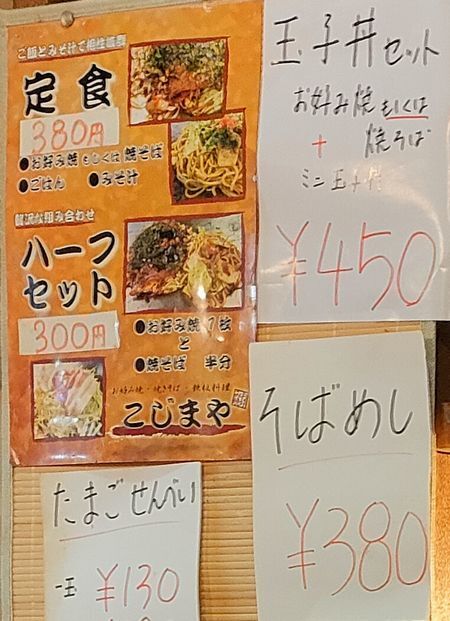 ご飯とみそ汁で相性抜群
定食
380円
●お好み焼 もしくは 焼そば
●ごはん ●みそ汁
贅沢な組み合わせ
ハーフ
セット
300円
●お好み焼 1枚
と
●焼そば 半分
お好み焼・焼きそば・鉄板料理
こじまや
玉子丼セット
お好み焼 もしくは
+ 焼そば
ミニ玉子丼
¥450
そばめし
¥380
たまごせんべい
一玉 ¥130